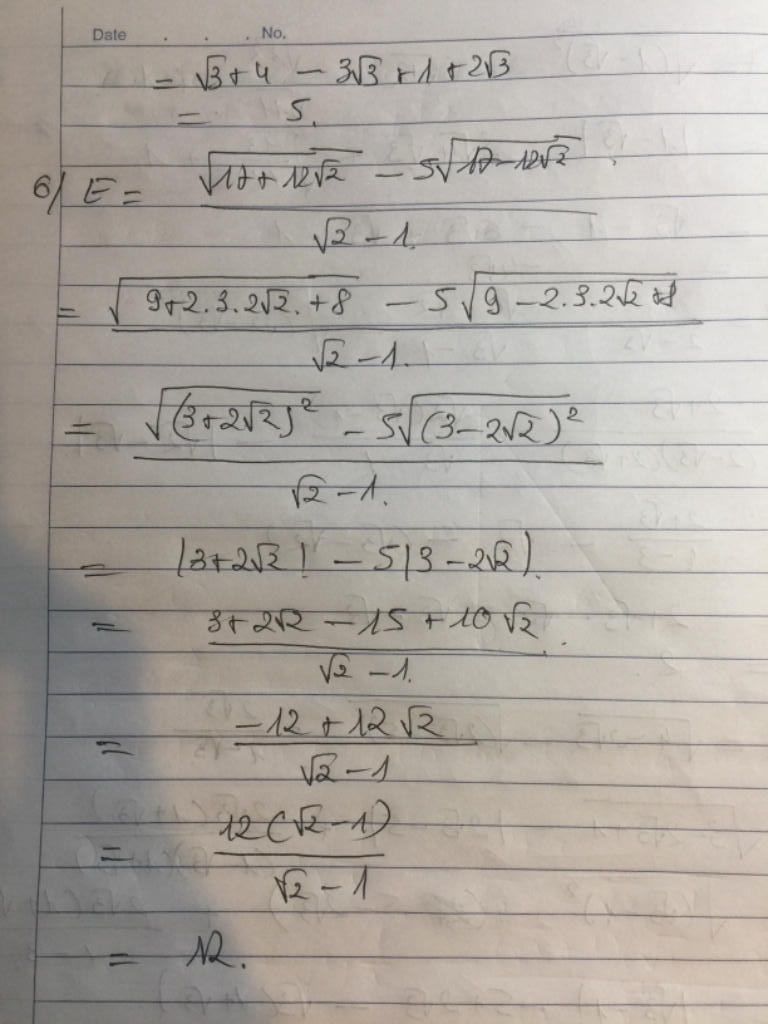 Date . . . No.
= √3 + 4 − 3√3 + 1 + 2√3
= 5.
6/ E = (√(17 + 12√2) − 5√(17 − 12√2)) / (√2 − 1).
= (√(9 + 2.3.2√2. + 8) − 5√(9 − 2.3.2√2 + 8)) / (√2 − 1.)
= (√((3 + 2√2)²) − 5√((3 − 2√2)²)) / (√2 − 1.)
= |3 + 2√2| − 5|3 − 2√2|.
= (3 + 2√2 − 15 + 10√2) / (√2 − 1.)
= (−12 + 12√2) / (√2 − 1)
= 12(√2 − 1) / (√2 − 1)
= 12.